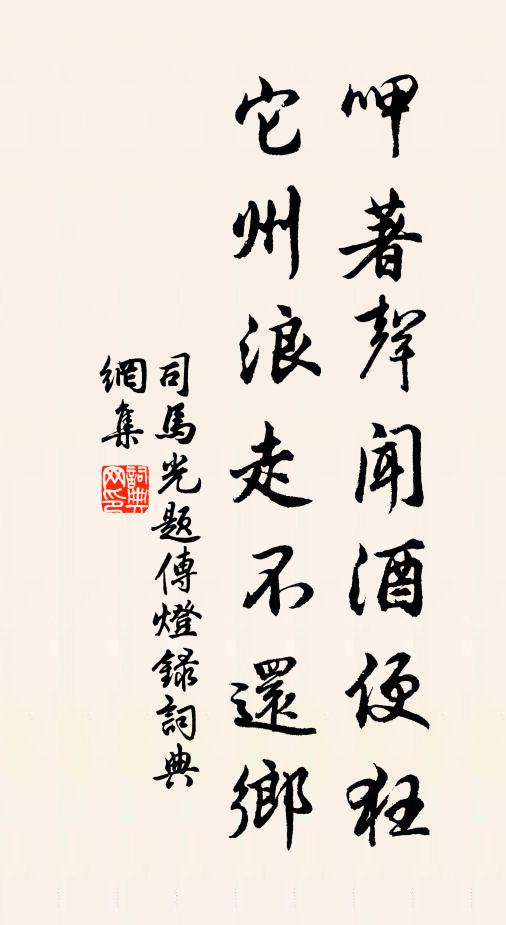 呷著聲聞酒便狂
它州浪走不還鄉
司馬光題傳燈錄詞典
網集
詞典
网印